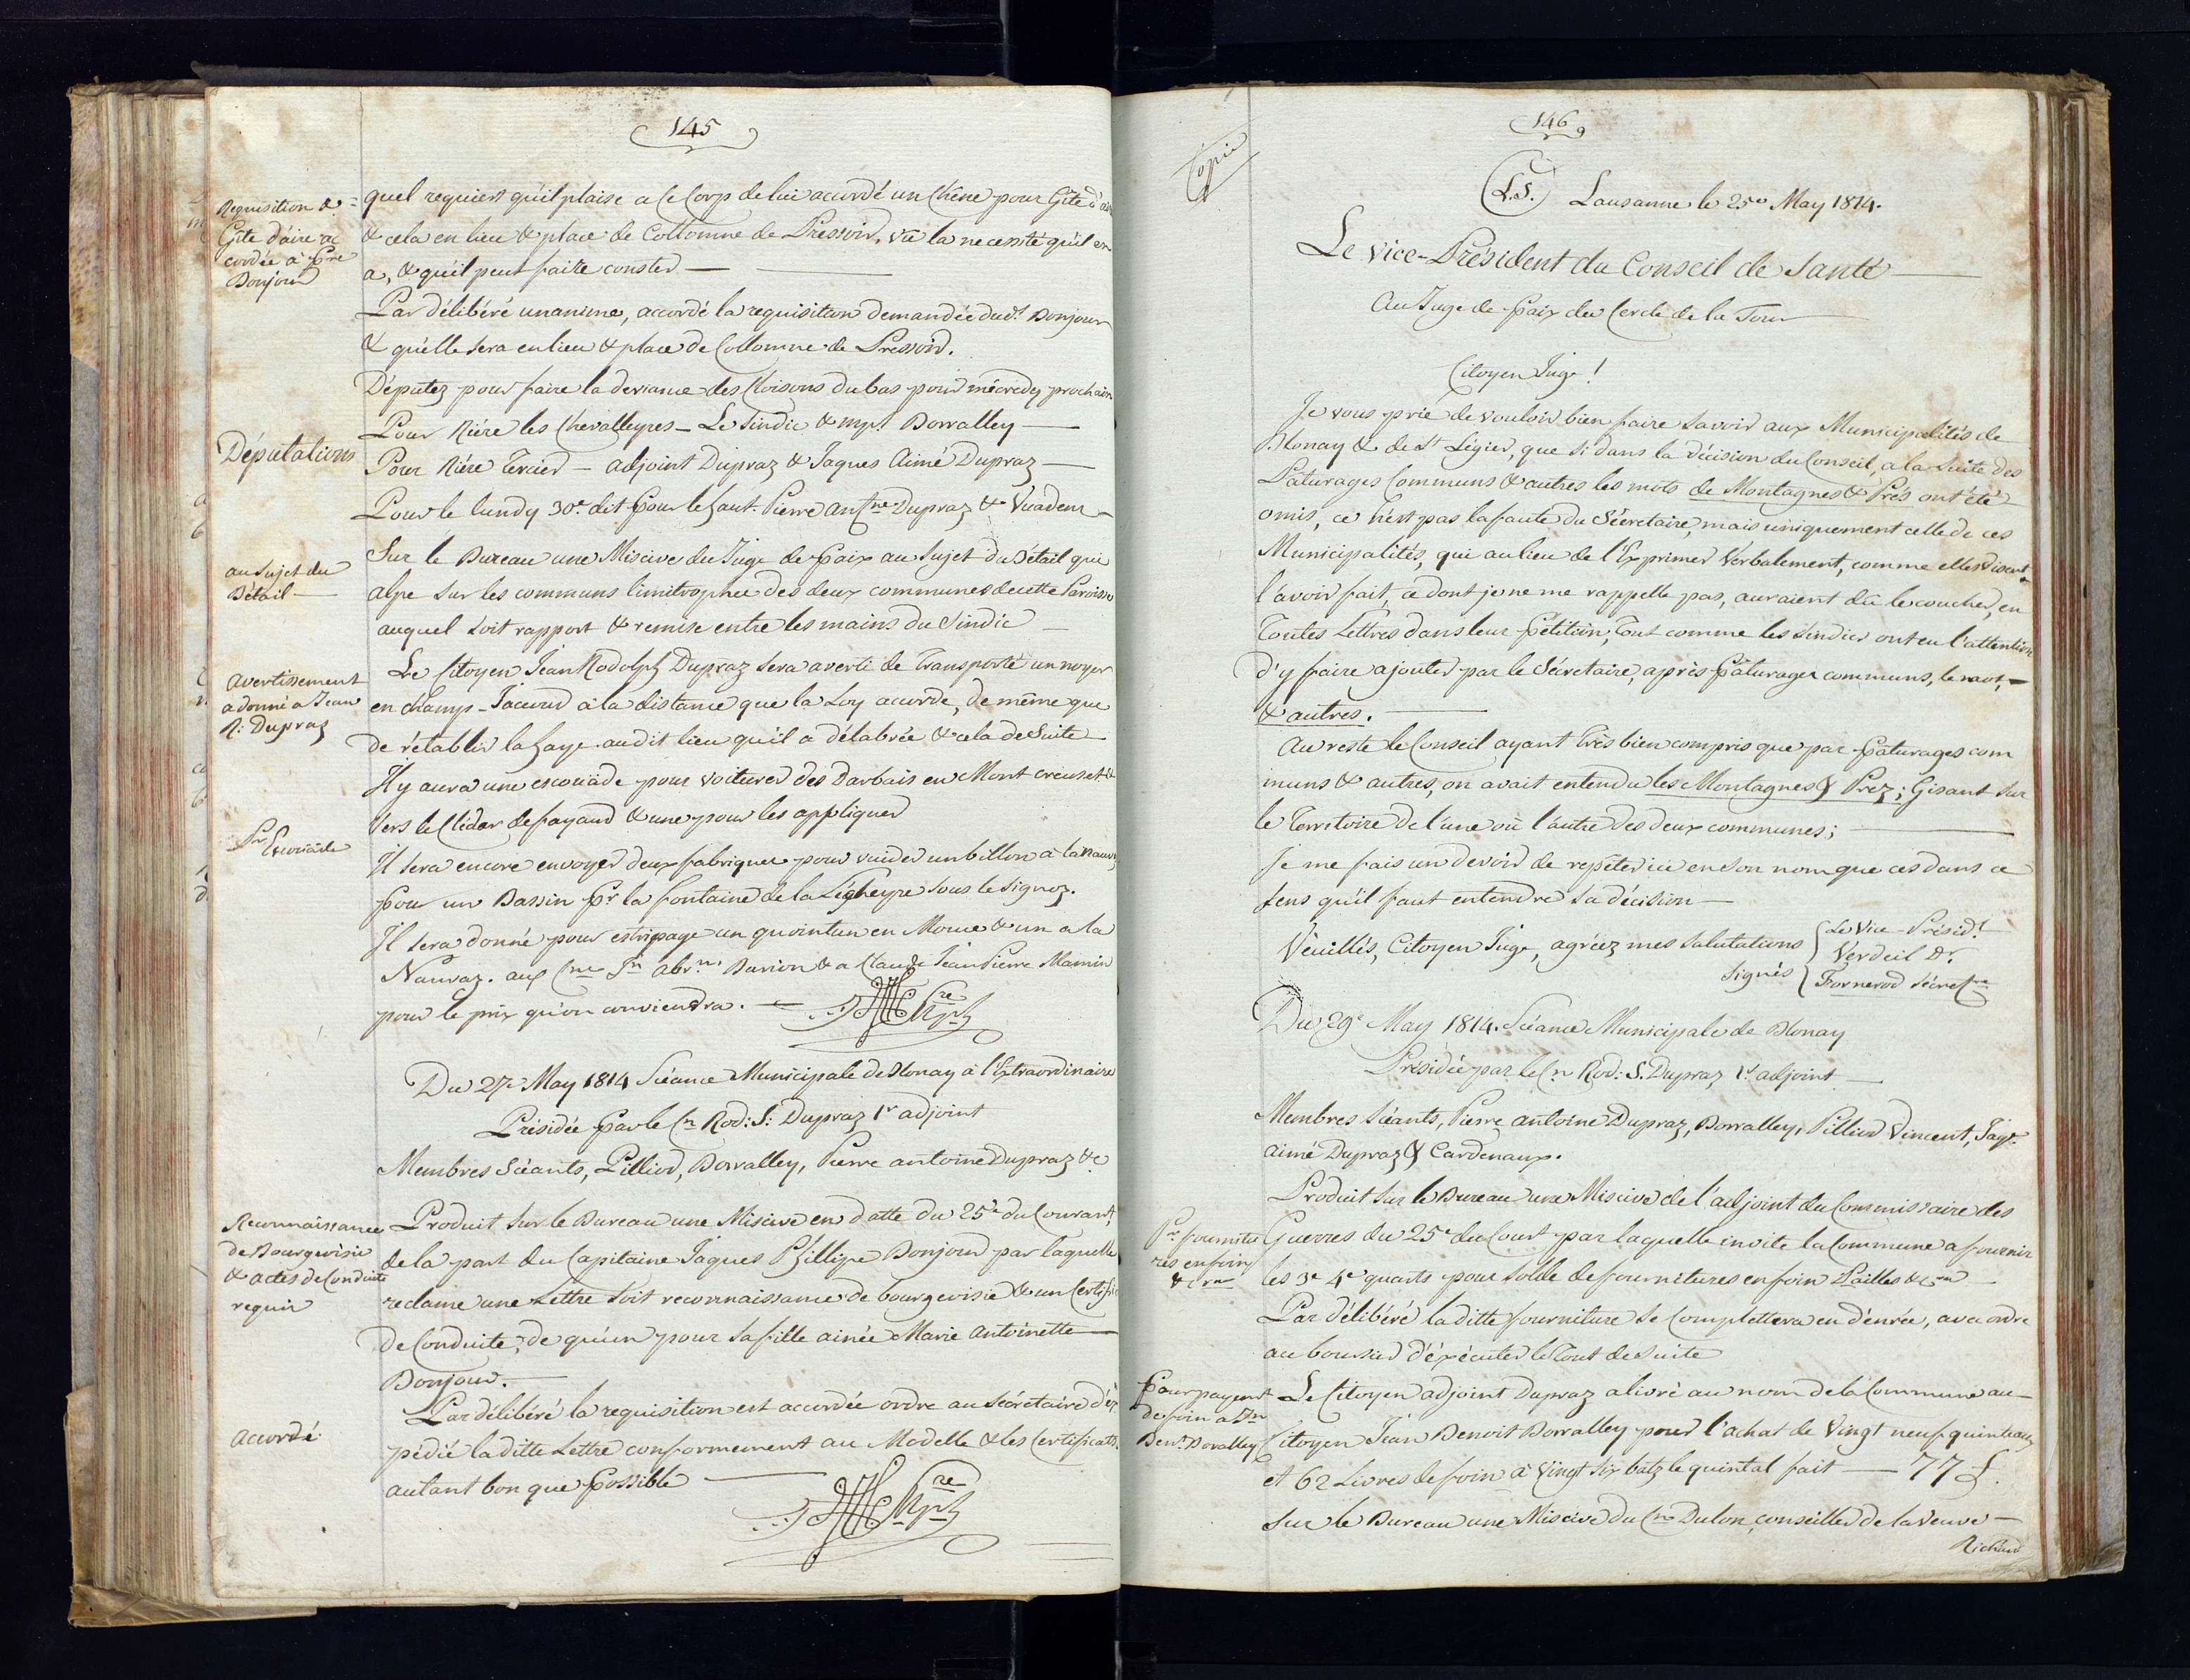 145
Requisition de
Gîte d'aire ac
cordée à Pre
Bonjour
quel requiert qu'il plaise a Ce Corp de lui accordé un Chêne pour Gîte d'aire
& cela en lieu & place de Collomne de Pressoir, vû la necessité qu'il en
a, & qu'il peut faire conster —
Par délibéré unanime, accordé la requisition demandée dudt. Bonjour
& qu'elle sera en lieu & place de Collomne de Pressoir.
Députez pour faire la deviance des Cloisons du bas pour mécredy prochain
Pour Riére les Chevalleyres - Le Sindic & mpl Borralley —
Députations
Pour Riére Tercier - adjoint Dupraz & Jaques Aimé Dupraz —
Pour le lundy 30e. dit Pour le haut. Pierre antne Dupraz & Vuadens
Sur le Bureau une Miscive du Juge de Paix au Sujet du Bétail qui
au sujet du
Bétail —
alpe sur les communs limitrophes des deux communes de cette Paroisse
auquel soit rapport & remise entre les mains du Sindic —
Le Citoyen Jean Rodolph Dupraz sera averti de Transporté un noyer
avertissement
a donné a Jean
R: Dupraz
en champ-Jaccoud à la distance que la Loy accorde, de même que
de rétablir la haye audit lieu qu'il a délabrée & cela de Suite
Il y aura une escouade pour voiturer des Darbais en Mont creuset &
vers le Clédar de fayaud & une pour les appliquer
Pr Escouade
Il sera encore envoyer deux fabriques pour vuider un billon à la Nauvaz
pour un Bassin Pr la fontaine de la Ligheyre sous le Signoz.
Il sera donné pour estripage un quointun en Morue & un a la
Nauvaz. aux Cne Jn abrm. Darion & a Claude Jean Pierre Mamin
pour le prix qu'on conviendra. —
Du 27e May 1814 Séance Municipale de Blonay à l'Extraordinaire
Présidée par le Cn Rod: S: Dupraz 1r adjoint
Membres Séants, Pilliod, Borralley, Pierre antoine Dupraz &c
Reconnaissance
de Bourgeoisie
& actes de Conduite
requis
Produit sur le Bureau une Miscive en datte du 25e du Courant,
de la part du Capitaine Jaques Phillipe Bonjour par laquelle
reclame une Lettre soit reconnaissance de bourgeoisie & un Certifi
de Conduite, de qu'un pour sa fille ainée Marie Antoinette —
Bonjour. —
Par délibéré la requisition est accordée ordre au Sécrétaire d'éx
accordé
pedié la ditte Lettre conformement au Modelle & les Certificats
autant bon que Possible —
146
Copie
(L.S.) Lausanne le 25e May 1814.
Le vice-Président du Conseil de Santé —
Au Juge de Paix du Cercle de la Tour
Citoyen Juge!
Je vous prié de vouloir bien faire savoir aux Municipalités de
Blonay & de St Légier, que si dans la décision du Conseil, a la suite des
Pâturages Communs & autres les mots de Montagnes & Prés ont été
omis, ce n'est pas la faute du Sécretaire, mais uniquement celle de ces
Municipalités, qui au lieu de l'Exprimer Verbalement, comme elles disent
l'avoir fait, ce dont je ne me rappelle pas, auraient dû le coucher, en
Toutes Lettres dans leur Pétition, Tout comme les Sindics ont eu l'attention
d'y faire ajouter par le Sécretaire, après Pâturages communs, le mot, —
& autres. —
Au reste le Conseil ayant Très bien compris que par Pâturages com
muns & autres, on avait entendu les Montagnes & Prez; Gisant sur
le Territoire de l'une où l'autre des deux communes; —
Je me fais un devoir de repéter ici en son nom que ces dans ce
sens qu'il faut entendre sa décision —
Veuillés, Citoyen Juge, agréez mes salutations
signés
Le Vice-Présidt
Verdeil Dr.
Fornerod Sécretre
Du 29e May 1814. Séance Municipale de Blonay
Présidée par le Cn Rod: S. Dupraz 1r adjoint —
Membres Séants, Pierre Antoine Dupraz, Borralley, Pilliod Vincent, Jaqs.
aimé Dupraz & Cardenaux.
Produit sur le Bureau une Miscive de l'adjoint du Commissaire des
Pr fournitu
res en foin
& cra
Guerres du 25e du Court par laquelle invite la Commune a fournir
les 3e 4e quarts pour Solde de fournitures en foin Pailles & cra —
Par délibéré la ditte fourniture se complettera en dénrée, avec ordre
au boursier d'éxécuter le Tout de suite
Pour payemt
de foin a Jn
Bent. Boralley
Le Citoyen adjoint Dupraz a livré au nom de la Commune au
Citoyen Jean Benoit Borralley pour l'achat de Vingt neuf quintaux
et 62 Livres de foin à Vingt six batz le quintal fait — 77 L.
Sur le Bureau une Miscive du Cne Dulon, conseiller de la Veuve —
Richard